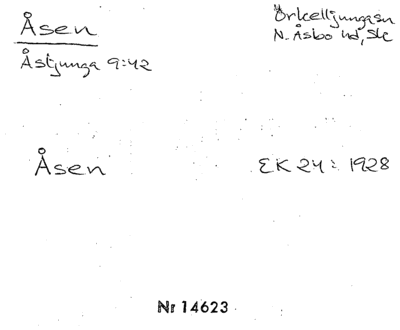 Åsen
Örkelljungasn
N. Åsbo hd, Sk
Åstjunga 9:42
Åsen
EK 24: 1928
Nr 14623